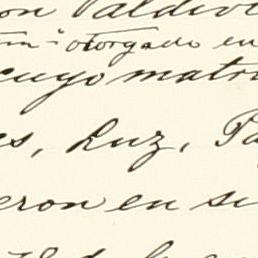 on Valdivi
otorgado en
cuyo matri
es, Luz, Ta
eron en su